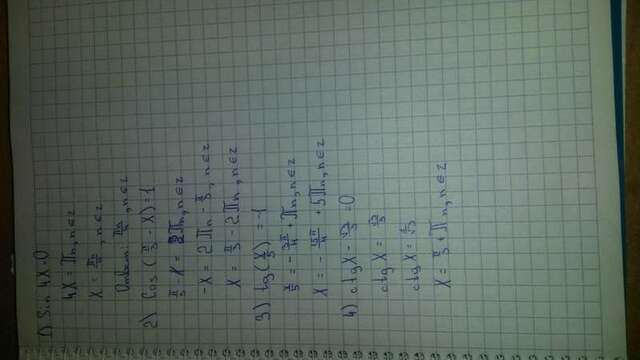 1) Sin 4x=0
4x = πn, n∈z
x = πn/4, n∈z
Ответ: πn/4, n∈z
2) Cos (π/3 - x) = 1
π/3 - x = 2πn, n∈z
-x = 2πn - π/3, n∈z
x = π/3 - 2πn, n∈z
3) tg(x/5) = -1
x/5 = - π/4 + πn, n∈z
x = - 5π/4 + 5πn, n∈z
4) ctgx - √3/3 = 0
ctgx = √3/3
ctgx = 1/√3
x = π/3 + πn, n∈z